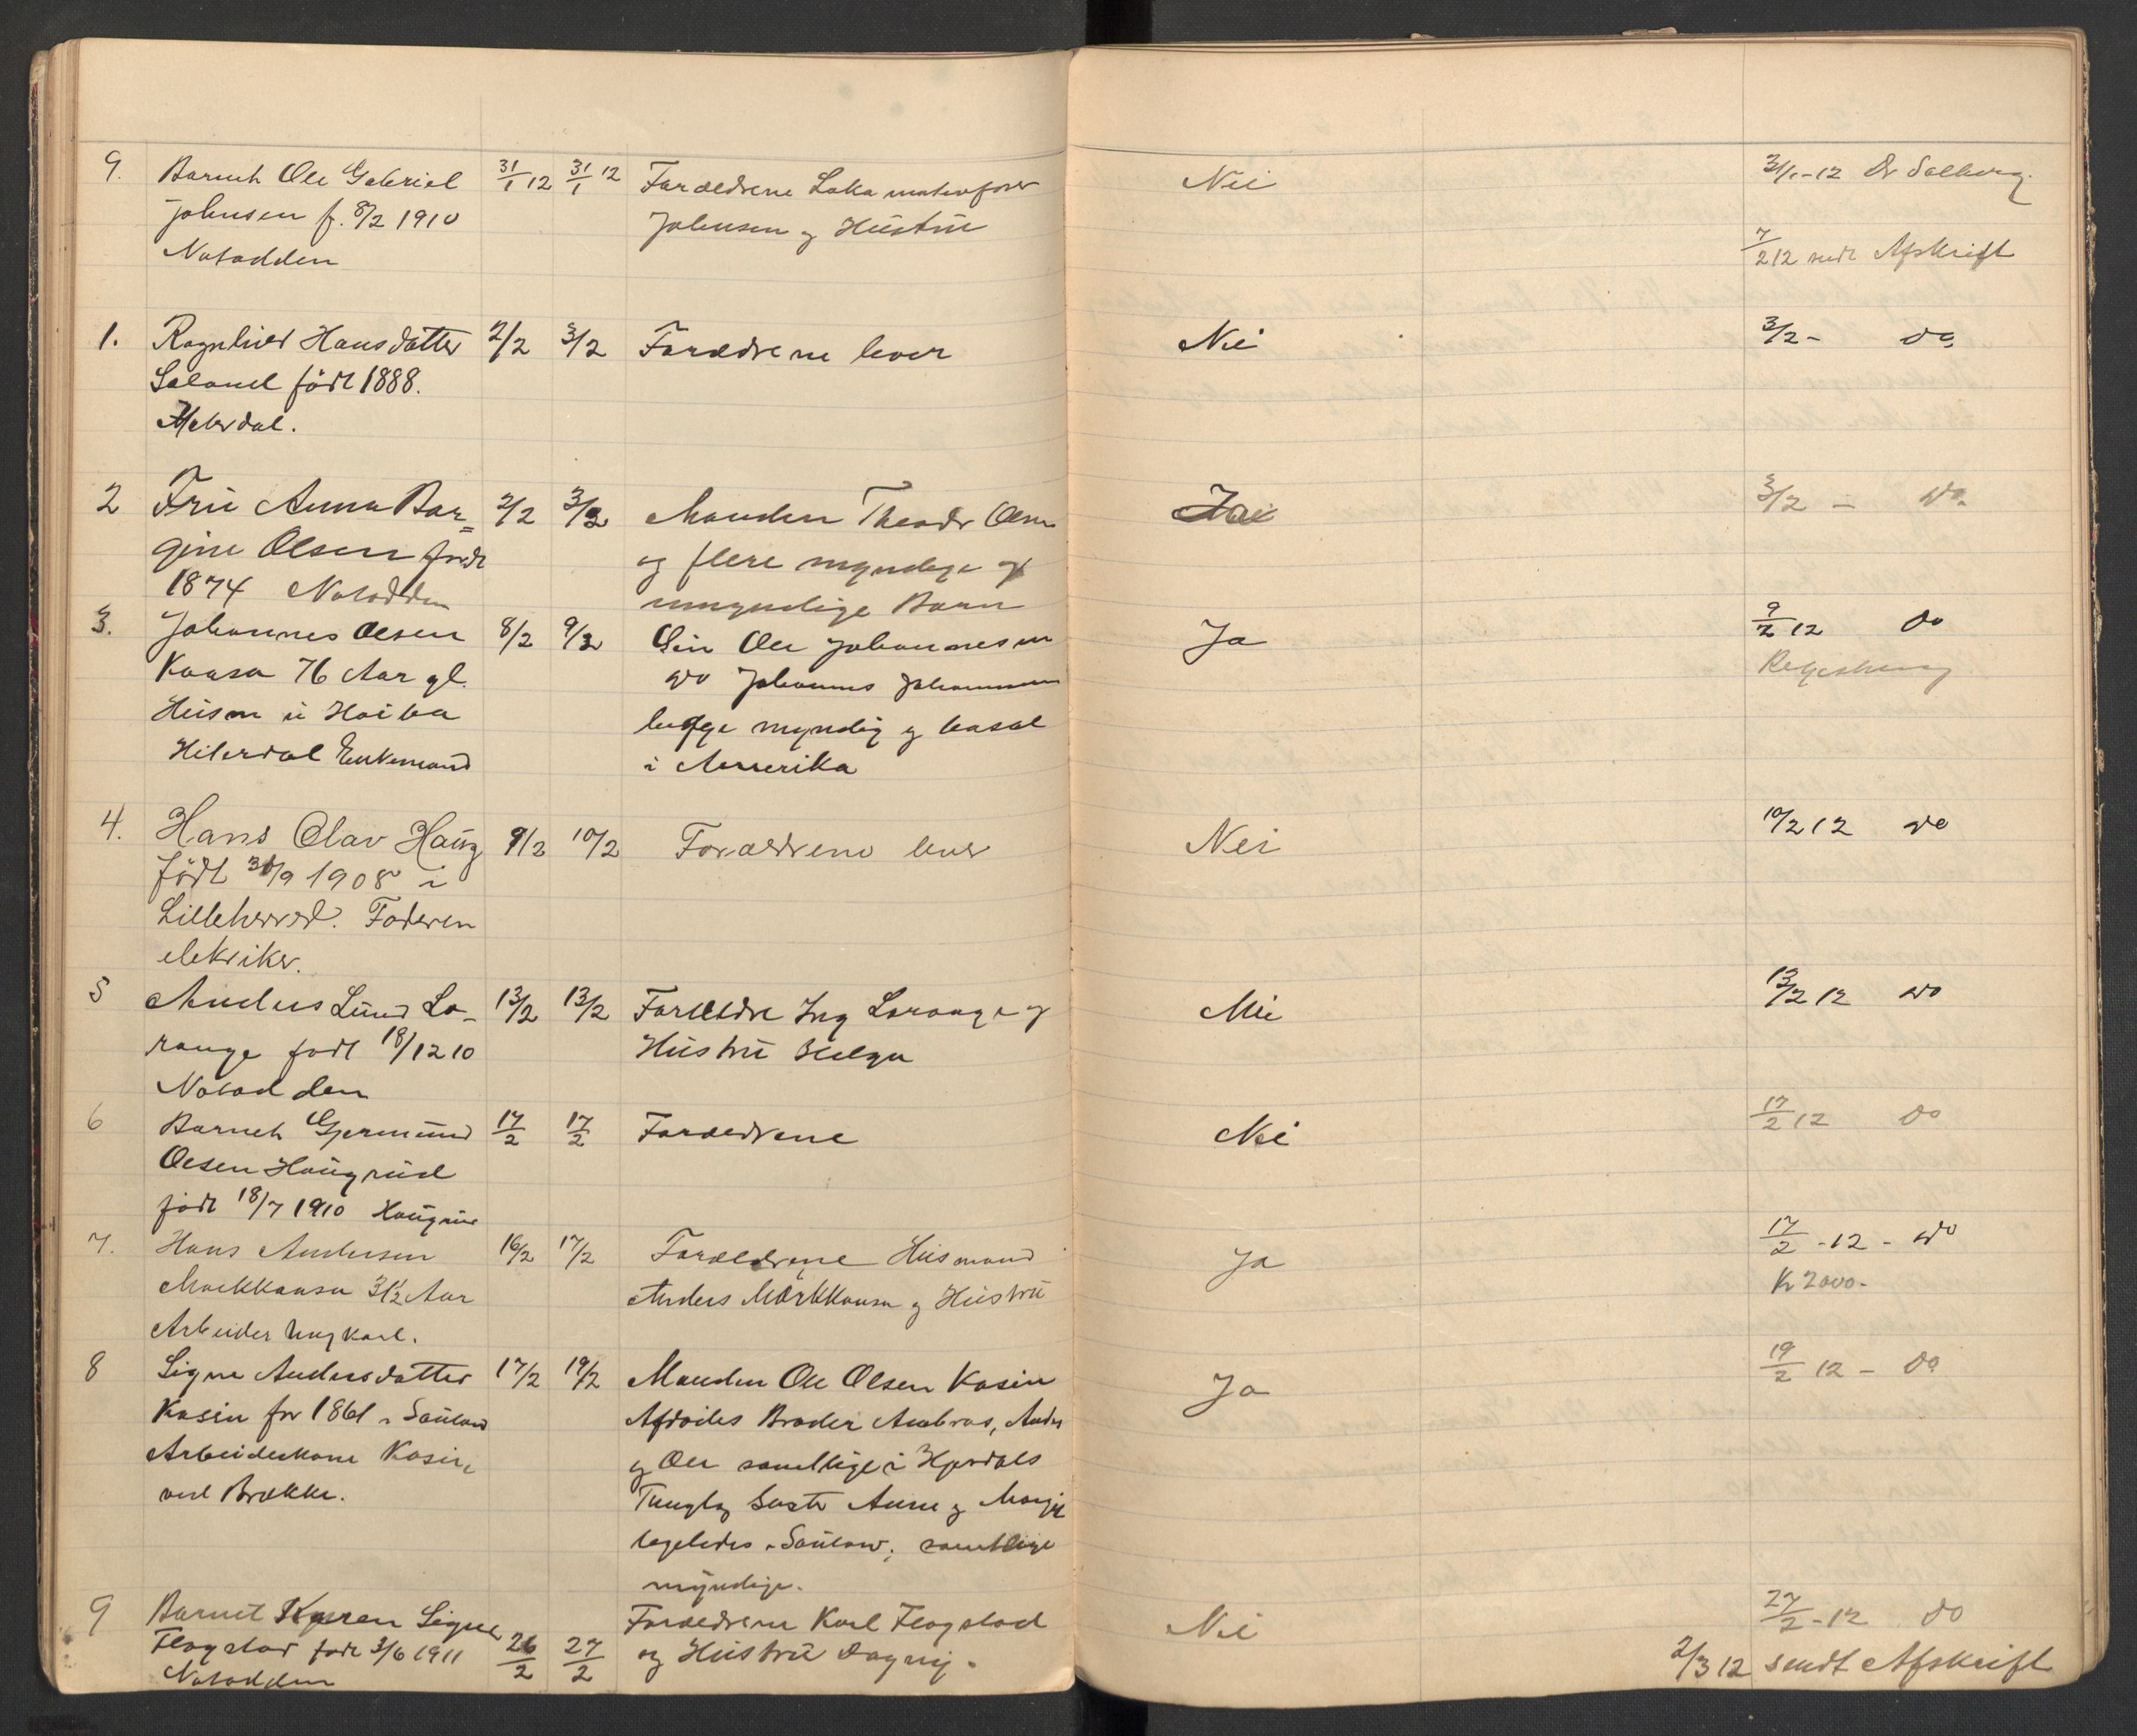 9. Barnet Ole Gabriel 31/1 12 31/1 12 Forældrene Lokomotivfører Nei 31/1-12 Dr Solberg.
Johnsen f. 8/2 1910 Johnsen og Hustru
Notodden 7/2 12 sendt Afskrift
1. Ragnhild Hansdatter 2/2 3/2 Forældrene lever Nei 3/2 - do
Soland født 1888.
Hiterdal.
2 Fru Anna Bor= 2/2 3/2 Manden Theodr Olsen Ja 3/2 - do
gine Olsen født og flere myndige og
1874 Notodden umyndige Barn
3. Johannes Olsen 8/2 9/2 Søn Ole Johannesen Ja 9/2 12 do
Kaasa 76 Aar gl. do Johannes Johannesen
Husm u Hoiba begge myndig og bosat
Hiterdal Enkemand i Amerika
4. Hans Olav Haug 9/2 10/2 Forældrene lever Nei 10/2 12 do
født 30/9 1908 i
Lilleherred. Faderen
elektriker.
5 Anders Lund Lo- 13/2 13/2 Forældre Ing Lorange og Nei 13/2 12 do
range født 18/12 10 Hustru Helga
Notodden
6 Barnet Gjermund 17/2 17/2 Forældrene Nei 17/2 12 do
Olsen Haugrud
født 18/7 1910 Haugrud
7. Hans Andersen 16/2 17/2 Forældrene Husmand Ja 17/2 - 12 - do
Mørkkaasa 31½ Aar Anders Mørkkaasa og Hustru K 2000.-
Arbeider Ungkarl.
8 Signe Andersdatter 17/2 19/2 Manden Ole Olsen Kasin Ja 19/2 12 - do
Kasin før 1861 i Sauland Afdødes Brødre Ambros, Anders
Arbeiderkone Kasin og Ole samtlige i Hjerdals
ved Brække. Tinglag Søster Anne og Margit
ligeledes i Sauland; samtlige
myndige.
9 Barnet Karen Signe 26/2 27/2 Forældrene Karl Flogstad Nei 27/2 - 12 do
Flogstad født 3/6 1911 og Hustru Dagny.
Notodden 2/3 12 sendt Afskrift